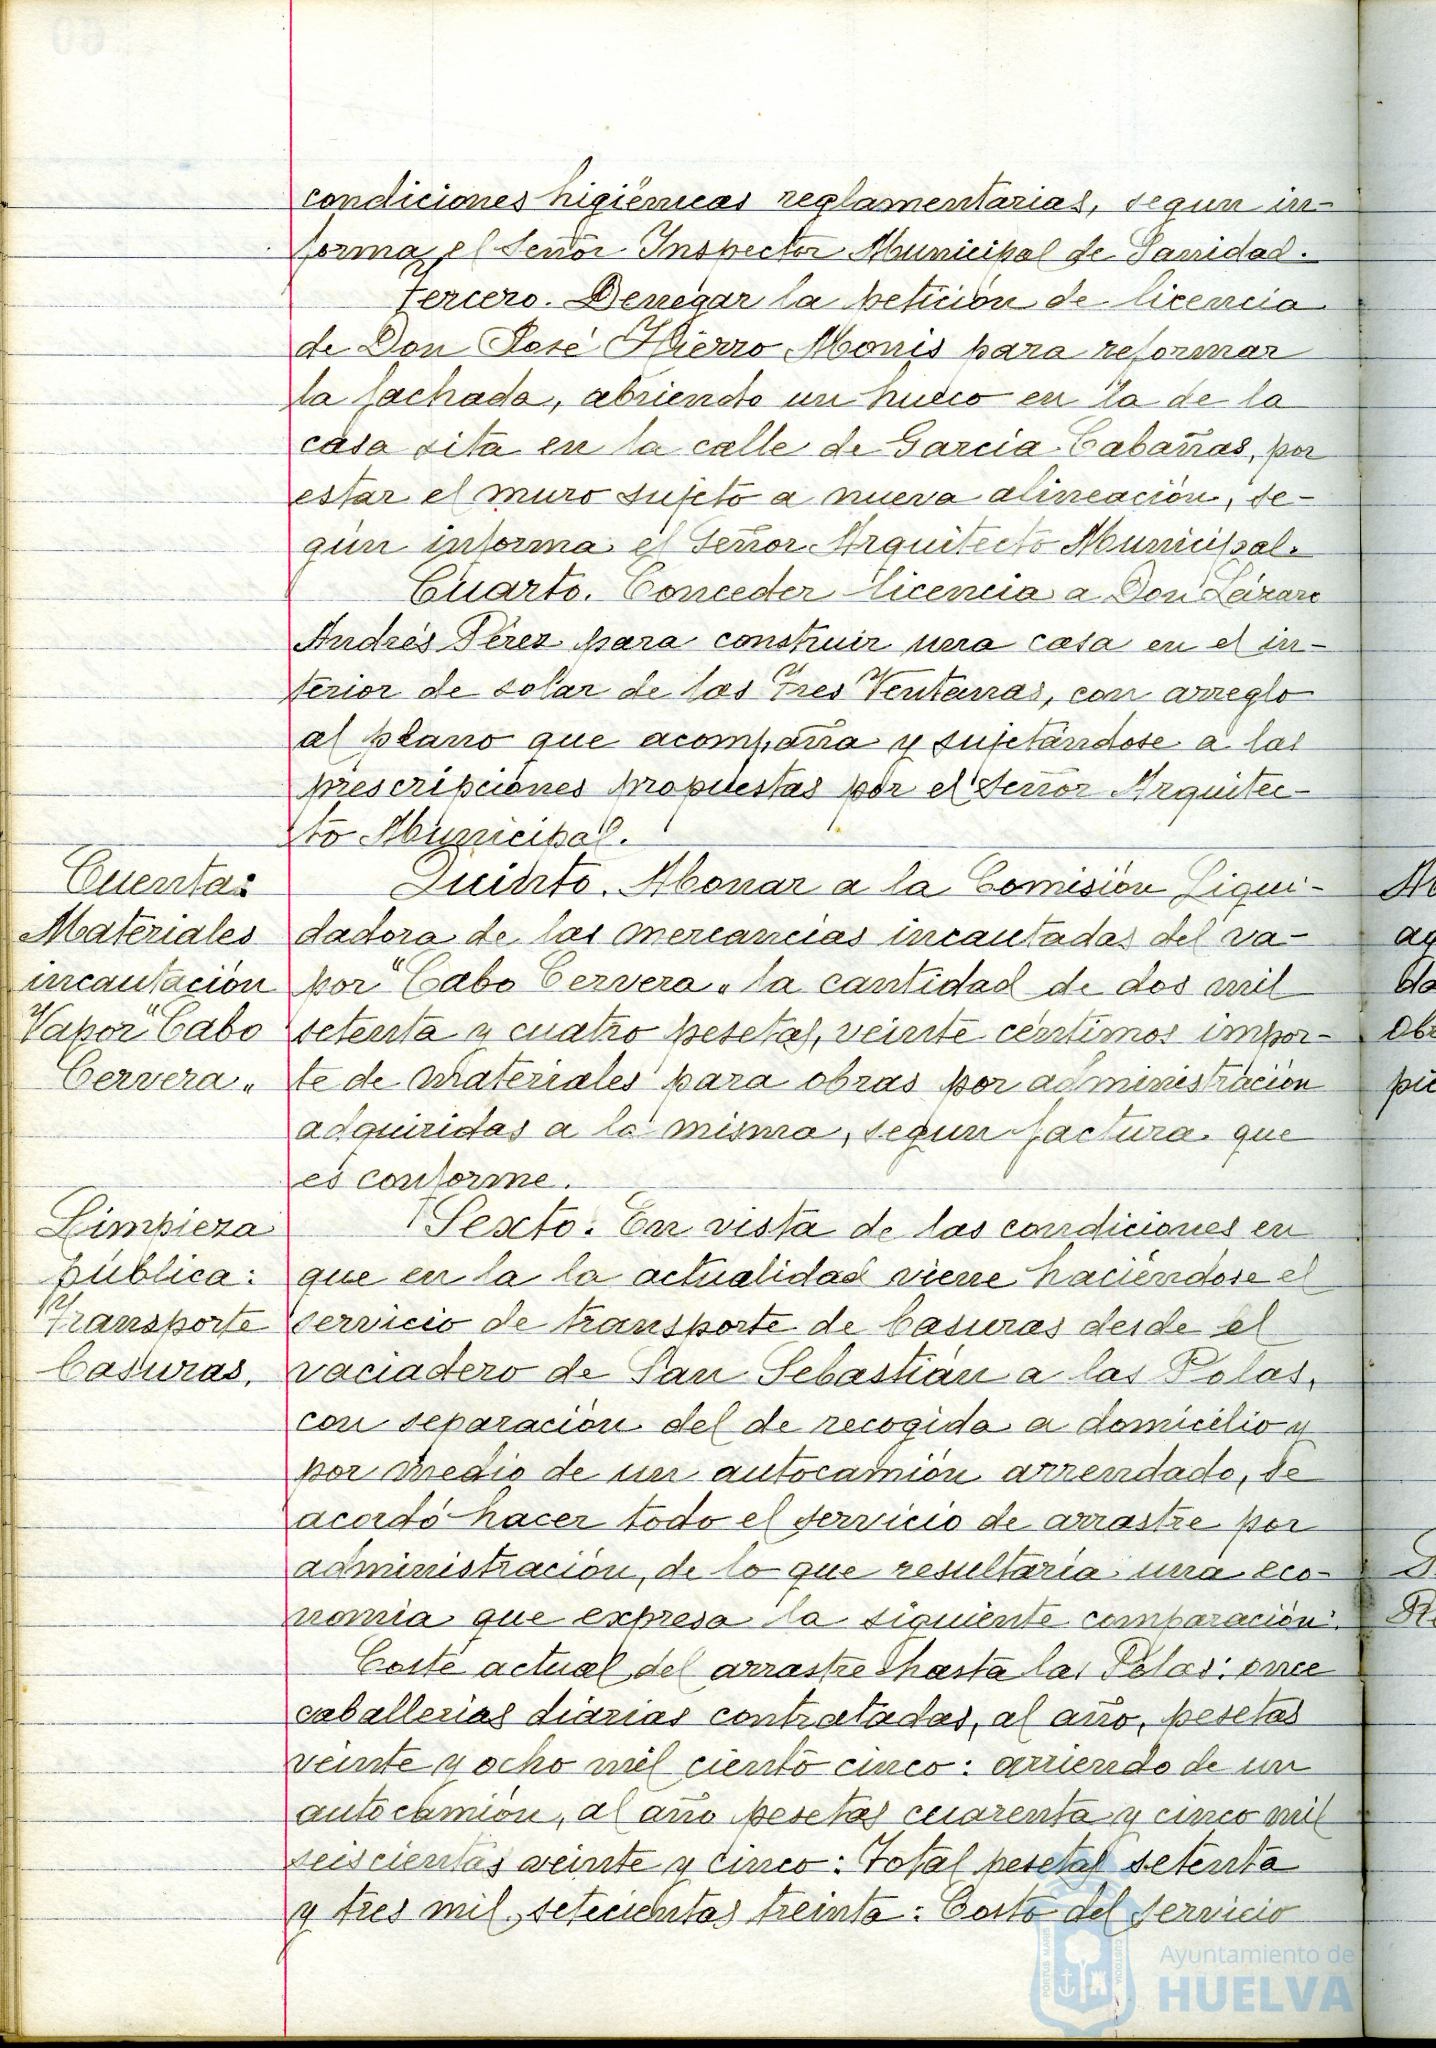 condiciones higiénicas reglamentarias, segun in-
forma el Señor Inspector Municipal de Sanidad.
Tercero. Denegar la petición de licencia
de Don José Hierro Monis para reformar
la fachada, abriendo un hueco en la de la
casa sita en la calle de García Cabañas, por
estar el muro sujeto a nueva alineación, se-
gún informa el Señor Arquitecto Municipal.
Cuarto. Conceder licencia a Don Lázaro
Andrés Pérez para construir una casa en el in-
terior de solar de las Tres Ventanas, con arreglo
al plano que acompaña y sujetándose a las
prescripciones propuestas por el Señor Arquitec-
to Municipal.
Cuenta:
Materiales
incautación
Vapor "Cabo
Cervera"
Quinto. Abonar a la Comisión Liqui-
dadora de las mercancias incautadas del va-
por "Cabo Cervera" la cantidad de dos mil
setenta y cuatro pesetas, veinte céntimos impor-
te de materiales para obras por administración
adquiridas a la misma, segun factura que
es conforme.
Limpieza
pública:
Transporte
basuras.
Sexto. En vista de las condiciones en
que en la la actualidad viene haciéndose el
servicio de transporte de basuras desde el
vaciadero de San Sebastián a las Polas,
con separación del de recogida a domicilio y
por medio de un autocamión arrendado, se
acordó hacer todo el servicio de arrastre por
administración, de lo que resultaría una eco-
nomía que expresa la siguiente comparación:
Coste actual del arrastre hasta las Polas: once
caballerias diarias contratadas, al año, pesetas
veinte y ocho mil ciento cinco: arriendo de un
autocamión, al año pesetas cuarenta y cinco mil
seiscientas veinte y cinco: Total pesetas setenta
y tres mil, setecientas treinta: Costo del servicio
PORTUS MARIS
CUSTODIA
Ayuntamiento de
HUELVA